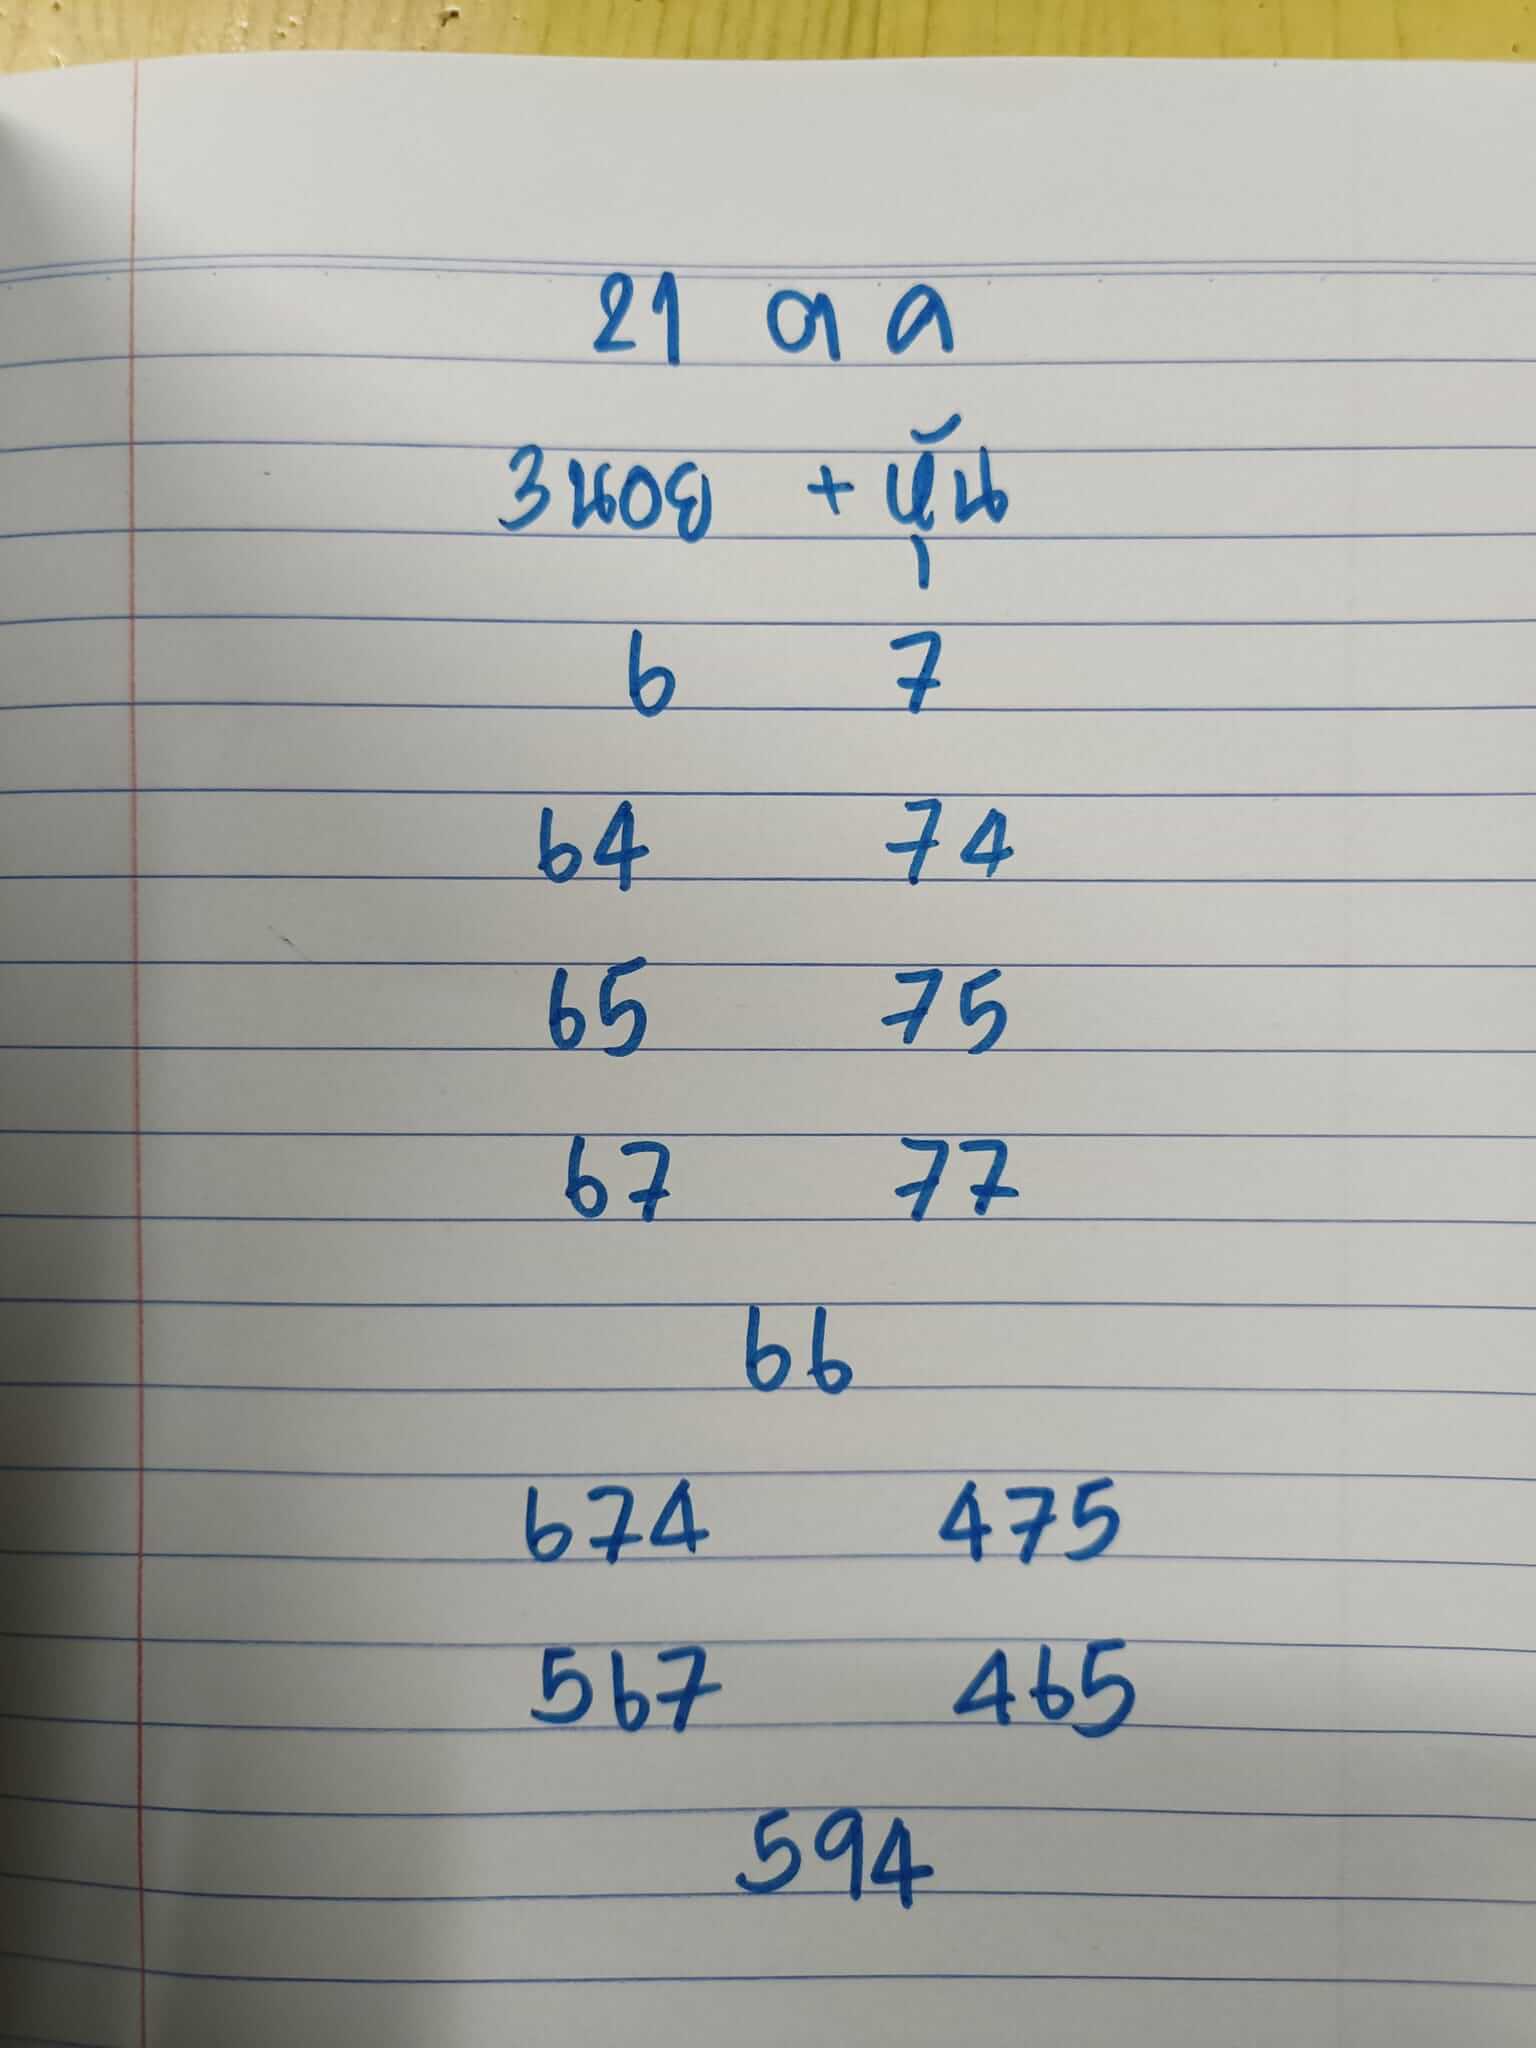 21 ตค
3นอย + หุ้น
6 7
64 74
65 75
67 77
66
674 475
567 465
594